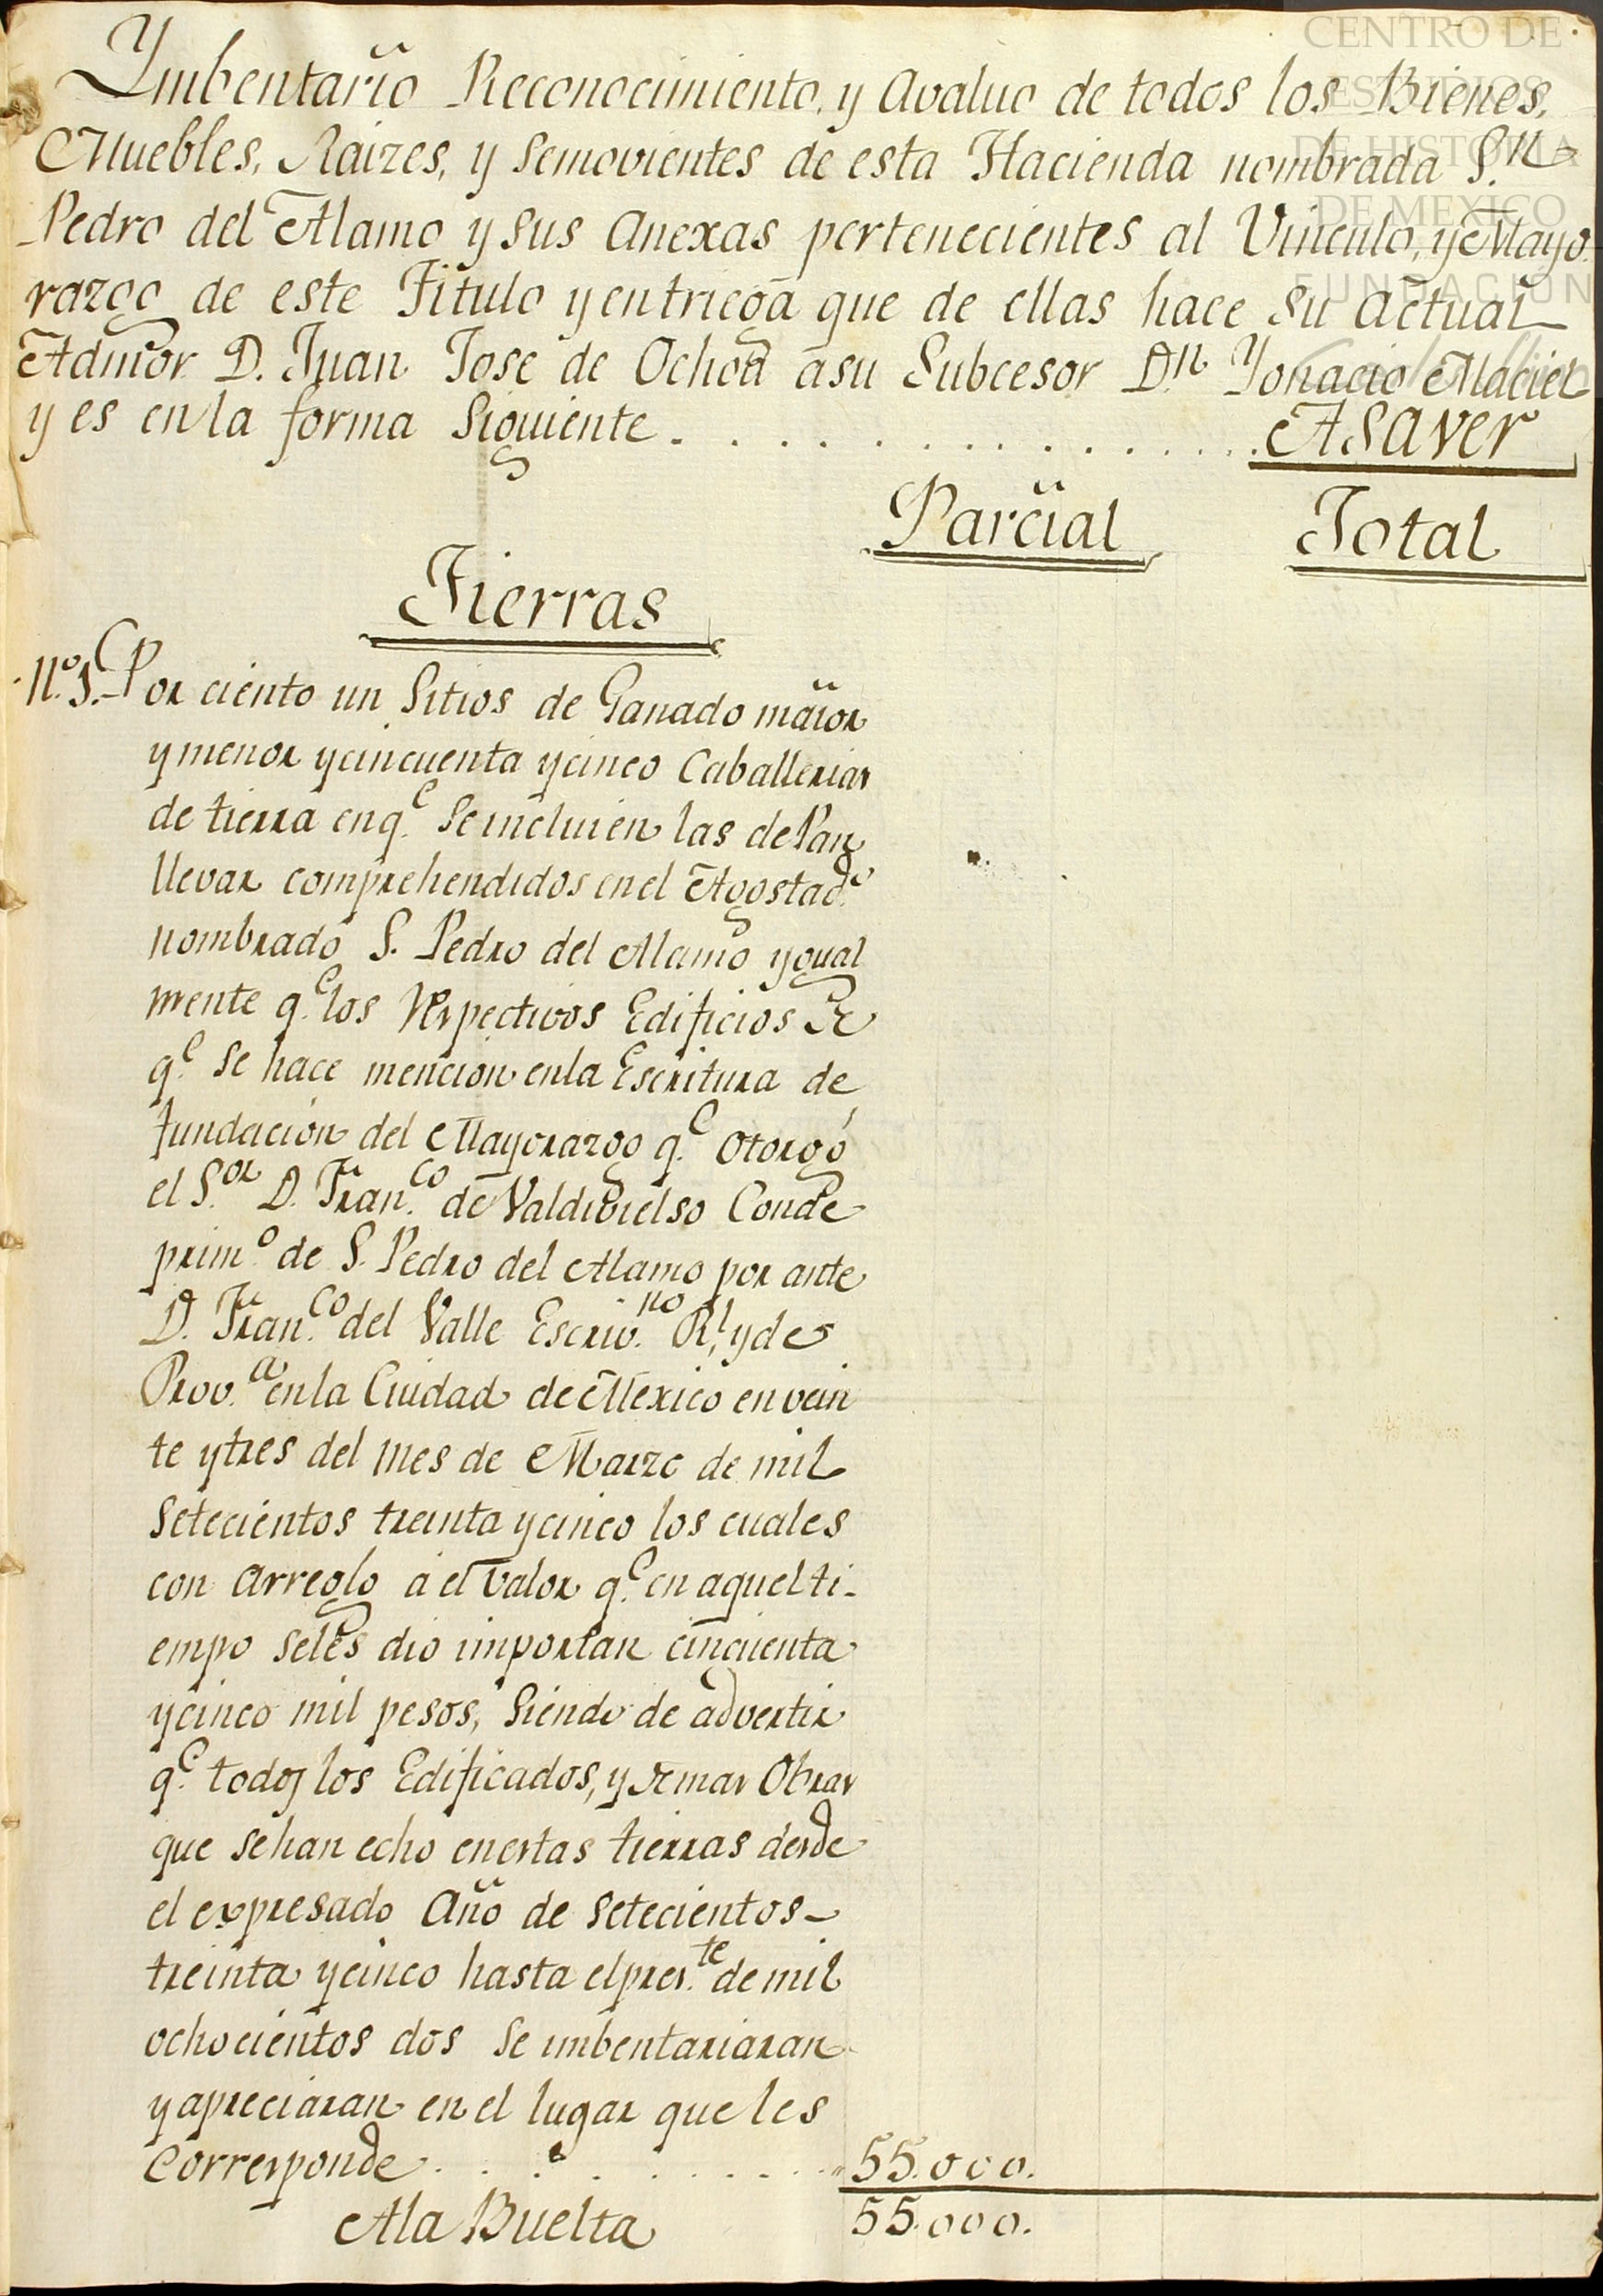 Ymbentario Reconocimiento, y Avaluo de todos los Bienes,
Muebles, Raizes, y Semovientes de esta Hacienda nombrada S.n
Pedro del Alamo y sus Anexas pertenecientes al Vinculo, y Mayo
razgo de este Titulo y entriega que de ellas hace su actual
Admor D. Juan Jose de Ochoa a su Subcesor Dn Ygnacio Maciel
y es en la forma Siguiente . . . . . . . . . . . . . . ASaver
Parcial Total
Tierras
N.º 1. Por ciento un Sitios de Ganado maior
y menor y cincuenta y cinco Caballerias
de tierra en q.e se incluien las de Pan
llevar comprehendidos en el Agostad.o
nombrado S. Pedro del Alamo ygual
mente q.e los respectivos Edificios de
q.e se hace mencion en la Escritura de
fundacion del Mayorazgo q.e otorgó
el S.or D. Fran.co de Valdivielso Conde
prim.o de S. Pedro del Alamo por ante
D. Fran.co del Valle Escriv.no Rl, y de
Prov.a en la Ciudad de Mexico en vein
te y tres del mes de Marzo de mil
Setecientos treinta y cinco los cuales
con arreglo a el valor q.e en aquel ti-
empo se les dio importan cinquenta
y cinco mil pesos, Siendo de advertir
q.e todos los Edificados, y demas Obras
que se han echo en estas tierras desde
el expresado Año de Setecientos
treinta y cinco hasta el pres.te de mil
ochocientos dos se imbentariaran
y apreciaran en el lugar que les
Corresponde . . . . . . . . . 55.000.
A la Buelta 55.000.
CENTRO DE
ESTUDIOS
DE HISTORIA
DE MEXICO
FUNDACIÓN